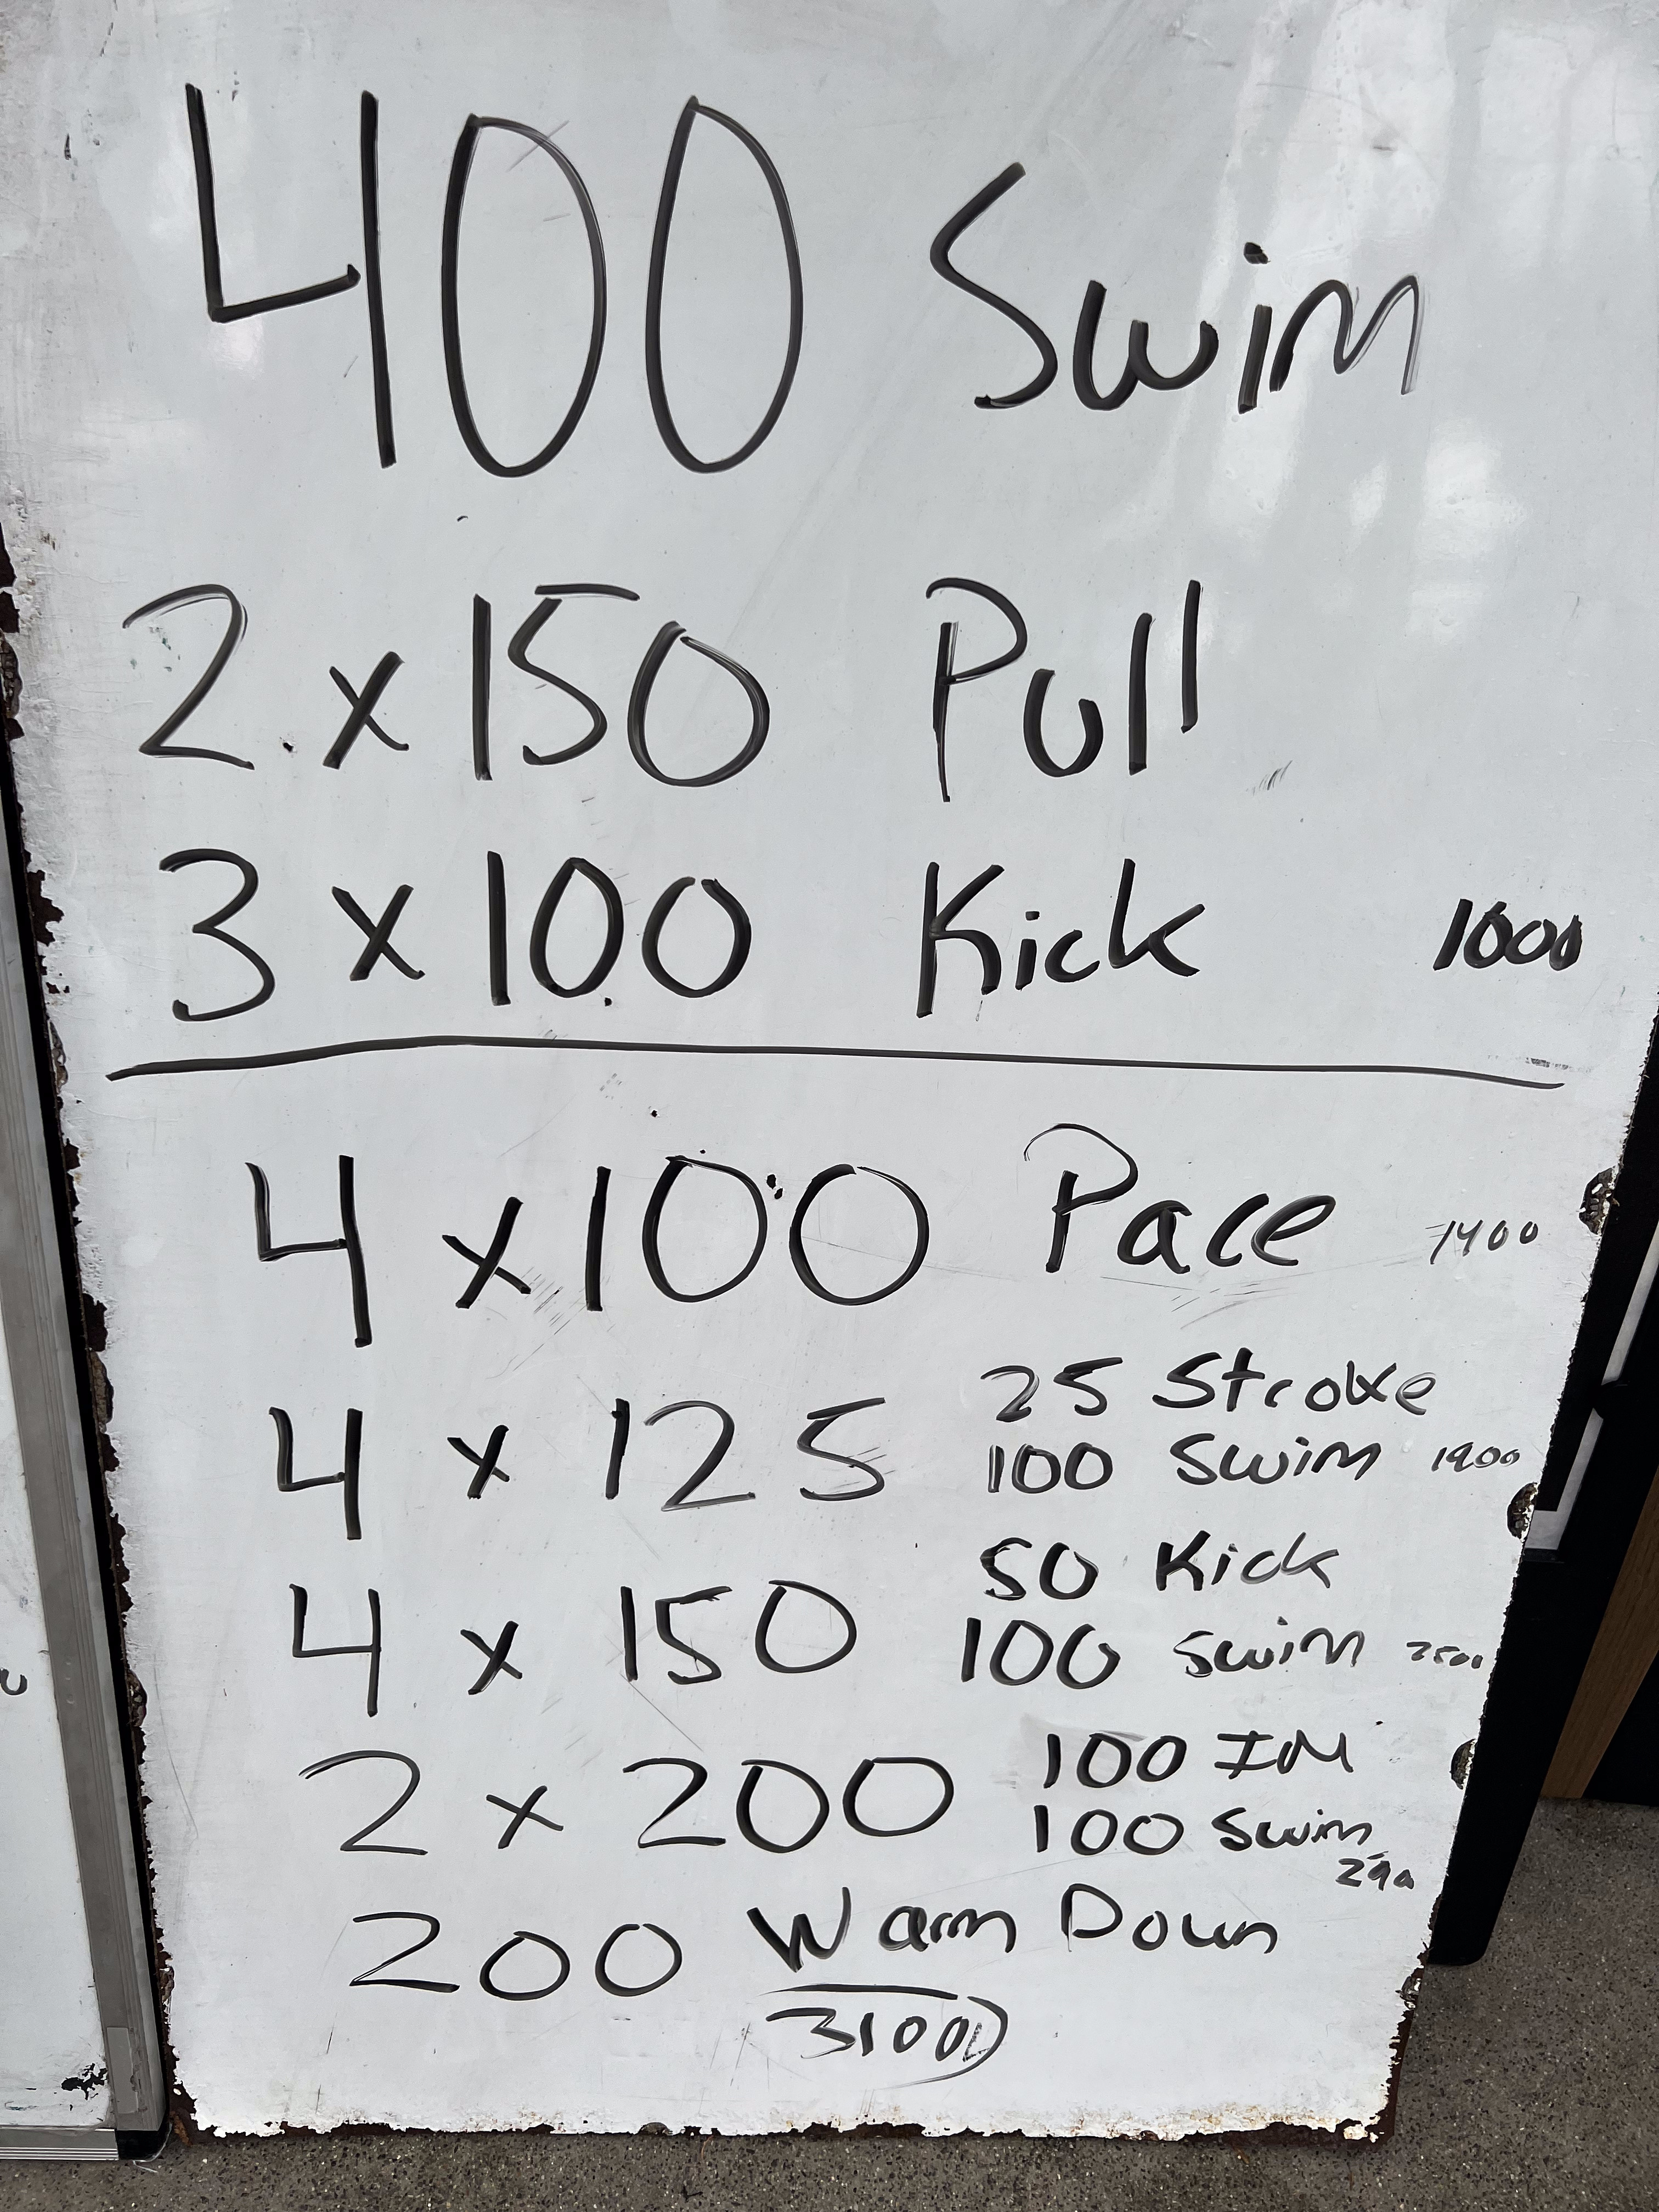 400 Swim
2 x 150 Pull
3 x 100 Kick 1000
4 x 100 Pace 1400
25 Stroke
4 x 125 100 Swim 1900
50 Kick
4 x 150 100 Swim 2500
100 IM
2 x 200 100 Swim
200 Warm Down
3100